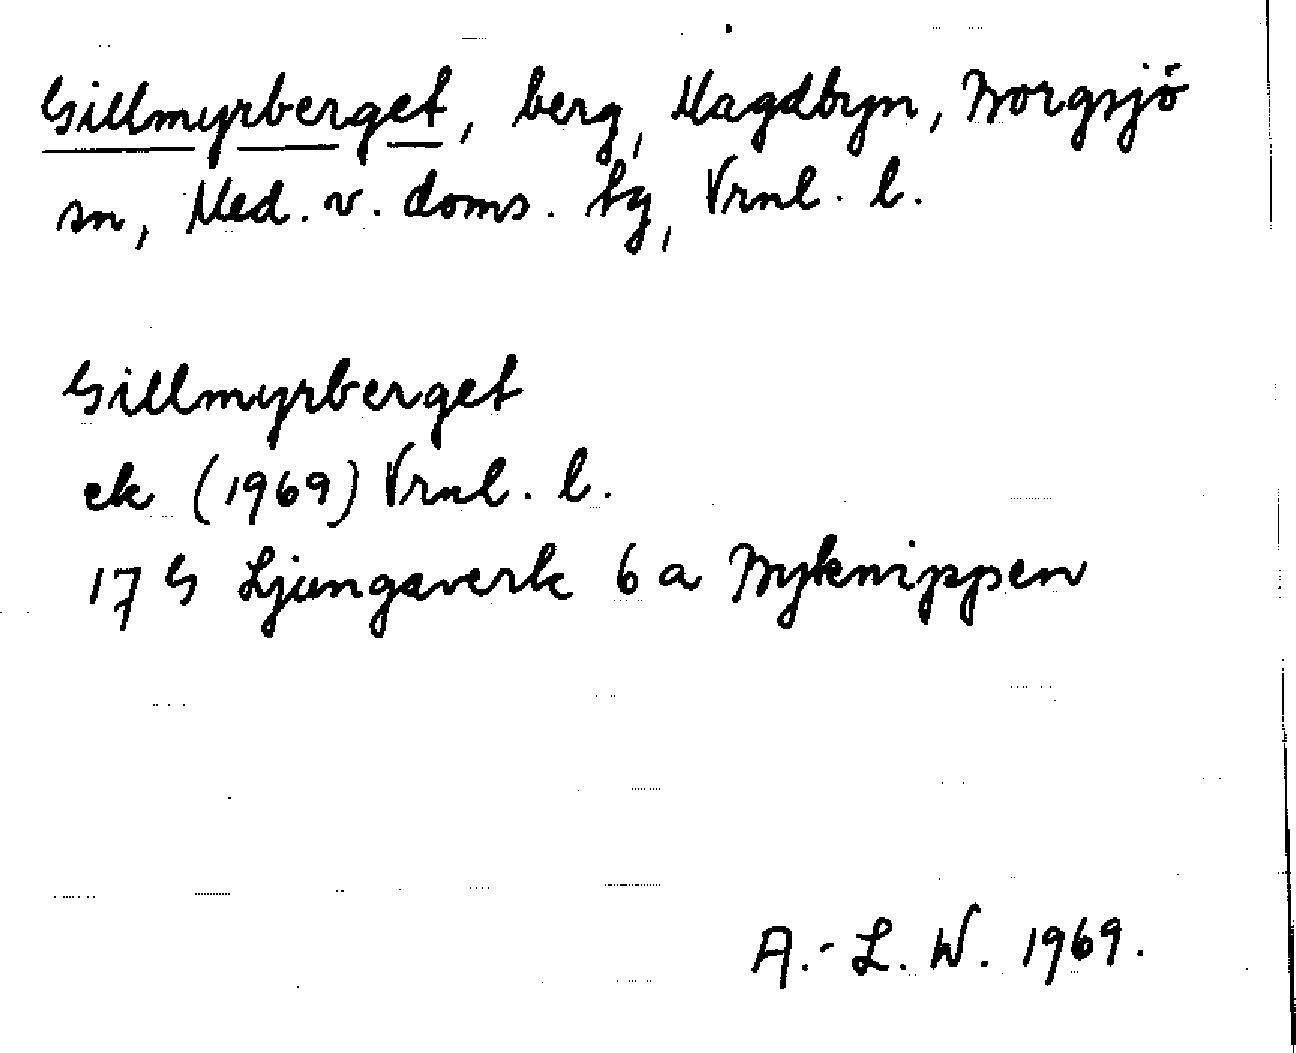 Gillmyrberget, berg, Magdbyn, Borgsjö
sn, Med. v. doms. tg, Vrnl. l.
Gillmyrberget
ek (1969) Vrnl. l.
17 G Ljungaverk 6 a Byknippen
A.-L. W. 1969.